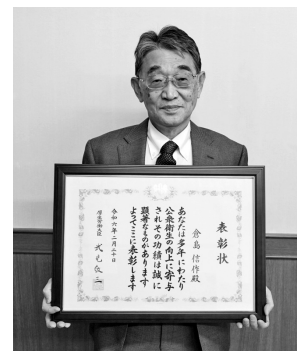 表彰状
倉島 信作殿
あなたは多年にわたり
公衆衛生の向上に寄与
されその功績は誠に
顕著なものがあります
よってここに表彰します
令和六年二月二十日
厚生労働大臣 武見敬三